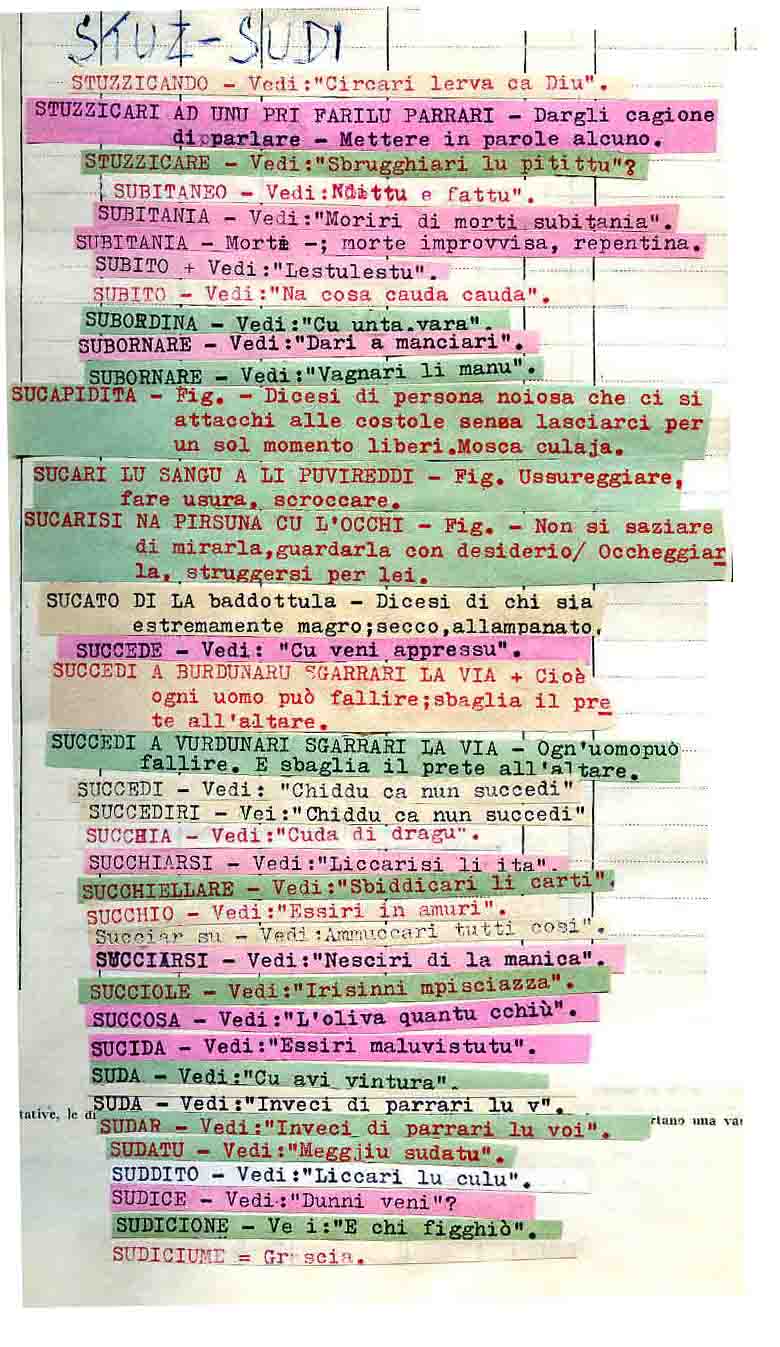 STUZ-SUDI
STUZZICANDO - Vedi:"Circari lerva ca Diu".
STUZZICARI AD UNU PRI FARILU PARRARI - Dargli cagione
di parlare - Mettere in parole alcuno.
STUZZICARE - Vedi:"Sbrugghiari lu pitittu"?
SUBITANEO - Vedi: e fattu".
SUBITANIA - Vedi:"Moriri di morti subitania".
SUBITANIA - Morte -; morte improvvisa, repentina.
SUBITO + Vedi:"Lestulestu".
SUBITO - Vedi:"Na cosa cauda cauda".
SUBORDINA - Vedi:"Cu unta vara".
SUBORNARE - Vedi:"Dari a manciari".
SUBORNARE - Vedi:"Vagnari li manu".
SUCAPIDITA - Fig. - Dicesi di persona noiosa che ci si
attacchi alle costole senza lasciarci per
un sol momento liberi.Mosca culaja.
SUCARI LU SANGU A LI PUVIREDDI - Fig. Ussureggiare,
fare usura, scroccare.
SUCARISI NA PIRSUNA CU L'OCCHI - Fig. - Non si saziare
di mirarla,guardarla con desiderio/ Occheggiar
la, struggersi per lei.
SUCATO DI LA baddottula - Dicesi di chi sia
estremamente magro;secco,allampanato.
SUCCEDE - Vedi: "Cu veni appressu".
SUCCEDI A BURDUNARU SGARRARI LA VIA + Cioè
ogni uomo può fallire;sbaglia il pre
te all'altare.
SUCCEDI A VURDUNARI SGARRARI LA VIA - Ogn'uomopuò
fallire. E sbaglia il prete all'altare.
SUCCEDI - Vedi: "Chiddu ca nun succedi"
SUCCEDIRI - Vei:"Chiddu ca nun succedi"
SUCCHIA - Vedi:"Cuda di dragu".
SUCCHIARSI - Vedi:"Liccarisi li ita".
SUCCHIELLARE - Vedi:"Sbiddicari li carti".
SUCCHIO - Vedi:"Essiri in amuri".
Succiar su - Vedi:Ammuccari tutti cosi".
SUCCIARSI - Vedi:"Nesciri di la manica".
SUCCIOLE - Vedi:"Irisinni mpisciazza".
SUCCOSA - Vedi:"L'oliva quantu cchiù".
SUCIDA - Vedi:"Essiri maluvistutu".
SUDA - Vedi:"Cu avi vintura".
SUDA - Vedi:"Inveci di parrari lu v".
tative, le di rtano una var
SUDAR - Vedi:"Inveci di parrari lu voi".
SUDATU - Vedi:"Meggjiu sudatu".
SUDDITO - Vedi:"Liccari lu culu".
SUDICE - Vedi:"Dunni veni"?
SUDICIONE - Ve i:"E chi figghiò".
SUDICIUME = Grascia.